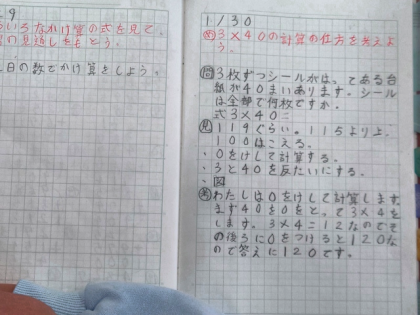 9
いろいろなかけ算の式を見て、
の見通しをもとう。
日の数でかけ算をしよう。
1/30
め 3×40の計算の仕方を考えよ
う。
問 3枚ずつシールがはってある台
紙が40まいあります。シール
は全部で何枚ですか。
式3×40=
見 119ぐらい。115より上。
100はこえる。
・0をけして計算する。
・3と40を反たいにする。
・図
考 わたしは0をけして計算します
ます40を0をとって3×4を
します。3×4=12なのでそ
の後ろに0をつけると120な
ので答えに120です。